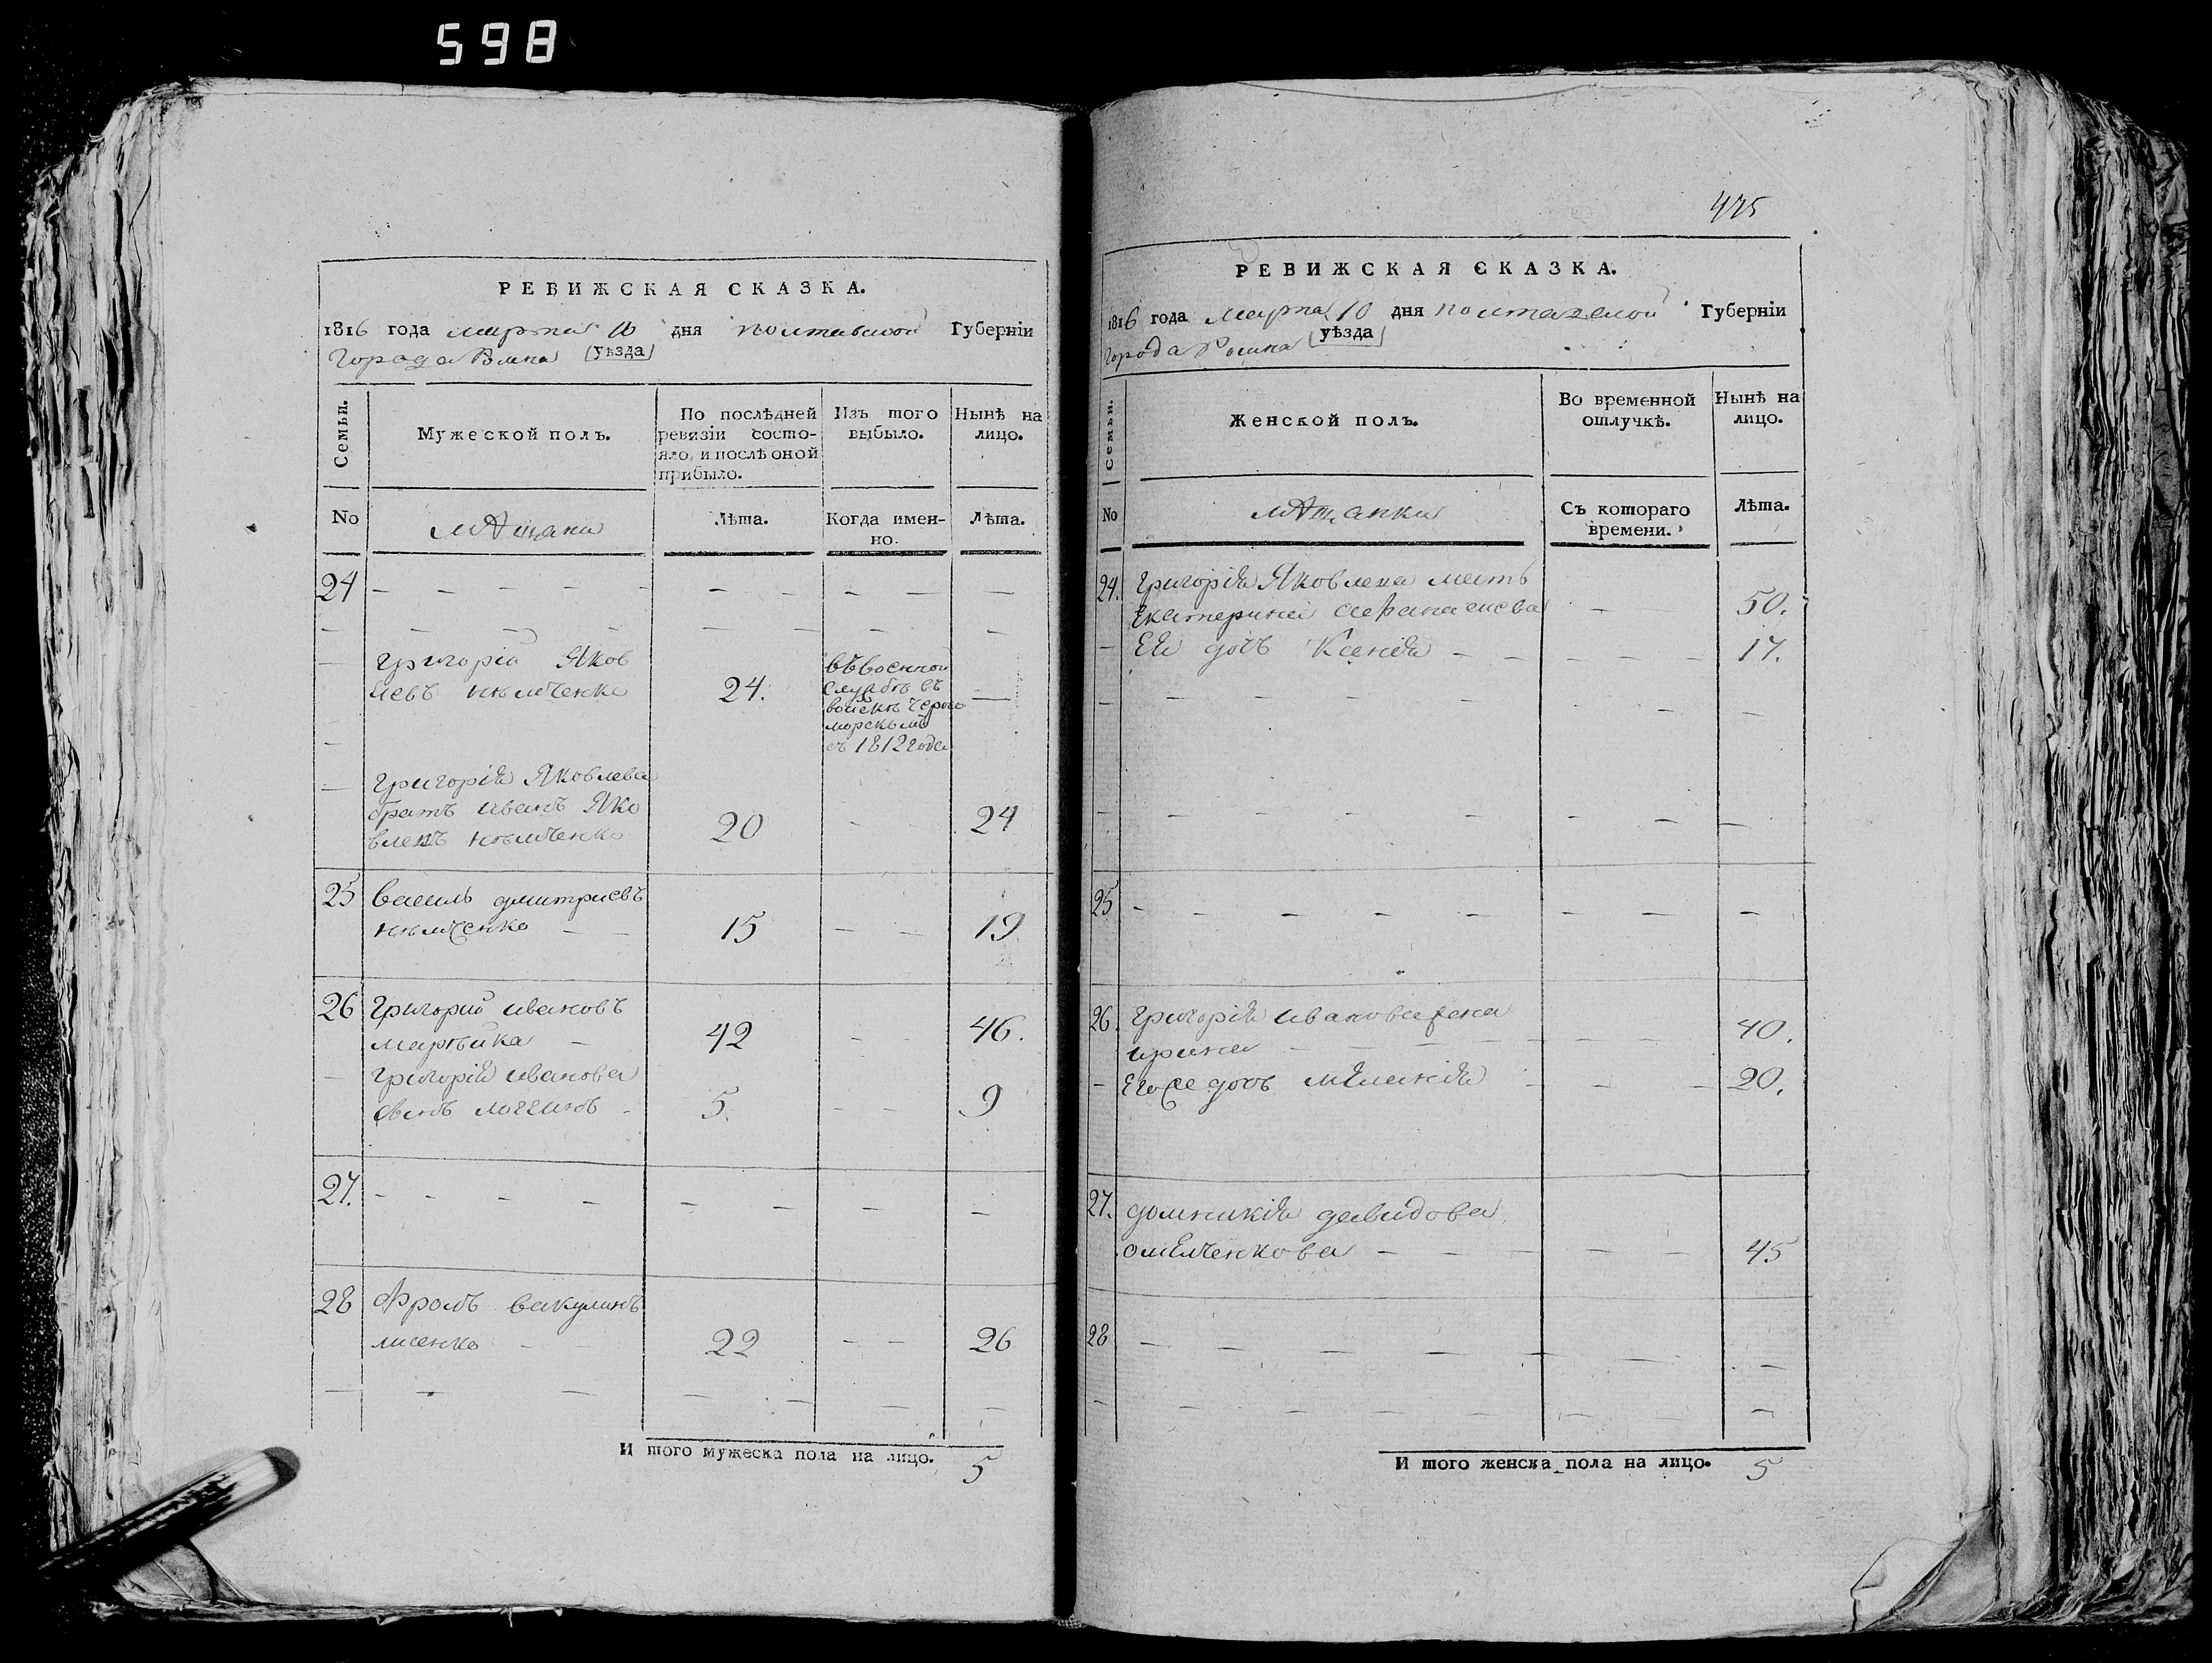 598
РЕВИЖСКАЯ СКАЗКА.
1816 года марта 10 дня полтавской Губерніи
города Ромна (уѣзда)
Семьи.
Мужеской полъ.
По послѣдней
ревизіи состо-
яло, и послѣ оной
прибыло.
Изъ того
выбыло.
Нынѣ на
лицо.
No
мѣщани
Лѣта.
Когда имен-
но.
Лѣта.
24
григорій Яков
левъ нѣмченко 24.
въ военной
службѣ въ
войскѣ черно
морскомъ
съ 1812 года
григорія Яковлева
братъ иванъ Яко
влевъ нѣмченко 20 24
25 василь дмитриевъ
нѣмченко 15 19
26 григорий ивановъ
42 46.
григорія иванова
сынъ логгинъ 5. 9
27.
28 Фролъ вакулинъ
лисенко 22 26
И того мужеска пола на лицо. 5
475
РЕВИЖСКАЯ СКАЗКА.
1816 года марта 10 дня полтавской Губерніи
города Ромна (уѣзда)
Семьи.
Женской полъ.
Во временной
отлучкѣ.
Нынѣ на
лицо.
No
мѣщанки
Съ котораго
времени.
Лѣта.
24. григорія Яковлева мать
Екатерина афанасиева 50.
Ея дочь Ксенія 17.
25
26. григорія иванова жена
ирина 40.
Его же дочь меланія 20.
27. домникія давидова
омелченкова 45
28
И того женска пола на лицо. 5